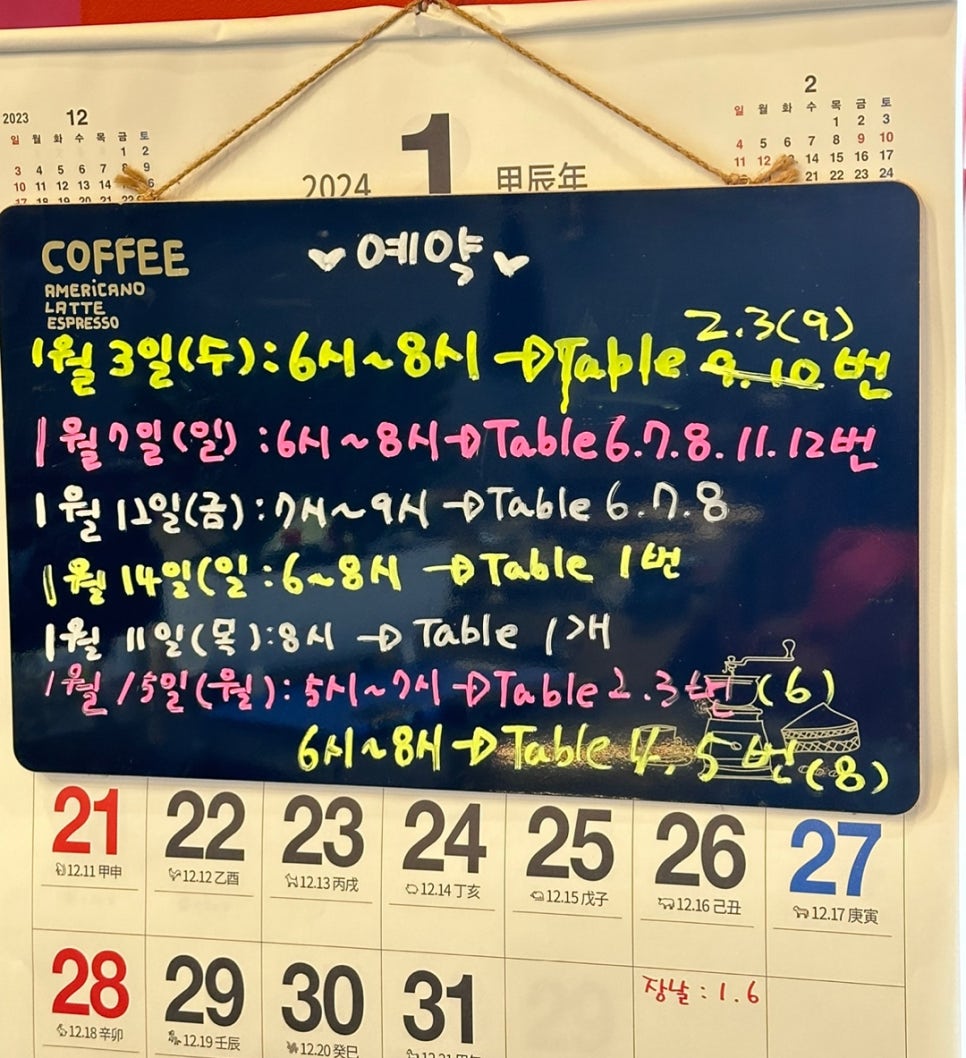 2023 12
일 월 화 수 목 금 토
1 2
3 4 5 6 7 8 9
10 11 12 13 14 16
17 18 19 20 21 22
2024 1 甲辰年
2
일 월 화 수 목 금 토
1 2 3
4 5 6 7 8 9 10
11 12 14 15 16 17
21 22 23 24
COFFEE
AMERICANO
LATTE
ESPRESSO
예약
2.3(9)
1월 3일(수):6시~8시 → Table 9.10번
1월 7일(일) :6시~8시→Table 6.7.8.11.12번
1월 12일(금):7시~9시 →Table 6.7.8
1월 14일(일 :6~8시 → Table 1번
1월 11일(목):8시 → Table 1개
1월 15일(월):5시~7시→Table 2.3번 (6)
6시~8시→Table 4, 5번(8)
21 22 23 24 25 26 27
12.11 甲申 12.12 乙酉 12.13 丙戌 12.14 丁亥 12.15 戊子 12.16 己丑 12.17 庚寅
28 29 30 31
장날 : 1.6
12.18 辛卯 12.19 壬辰 12.20 癸巳